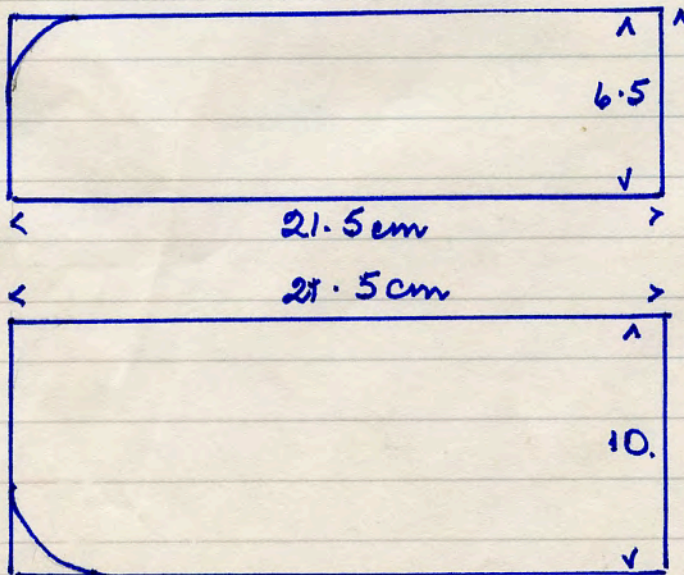 6.5
21.5 cm
21.5 cm
10.